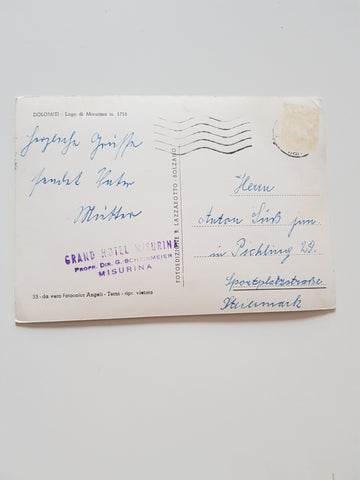 DOLOMITI - Lago di Misurina m. 1756
Herzliche Grüsse
sendet Vater
Mutter
GRAND HOTEL MISURINA
PROPR. DIR. G.
MISURINA
33 - da vero Fotocolor Angeli - Terni - ripr. vietata
FOTOEDIZIONE R. LAZZAROTTO - BOLZANO
Herrn
Anton Süß jun.
in Pichling 29.
Sportplatzstraße
Steiermark